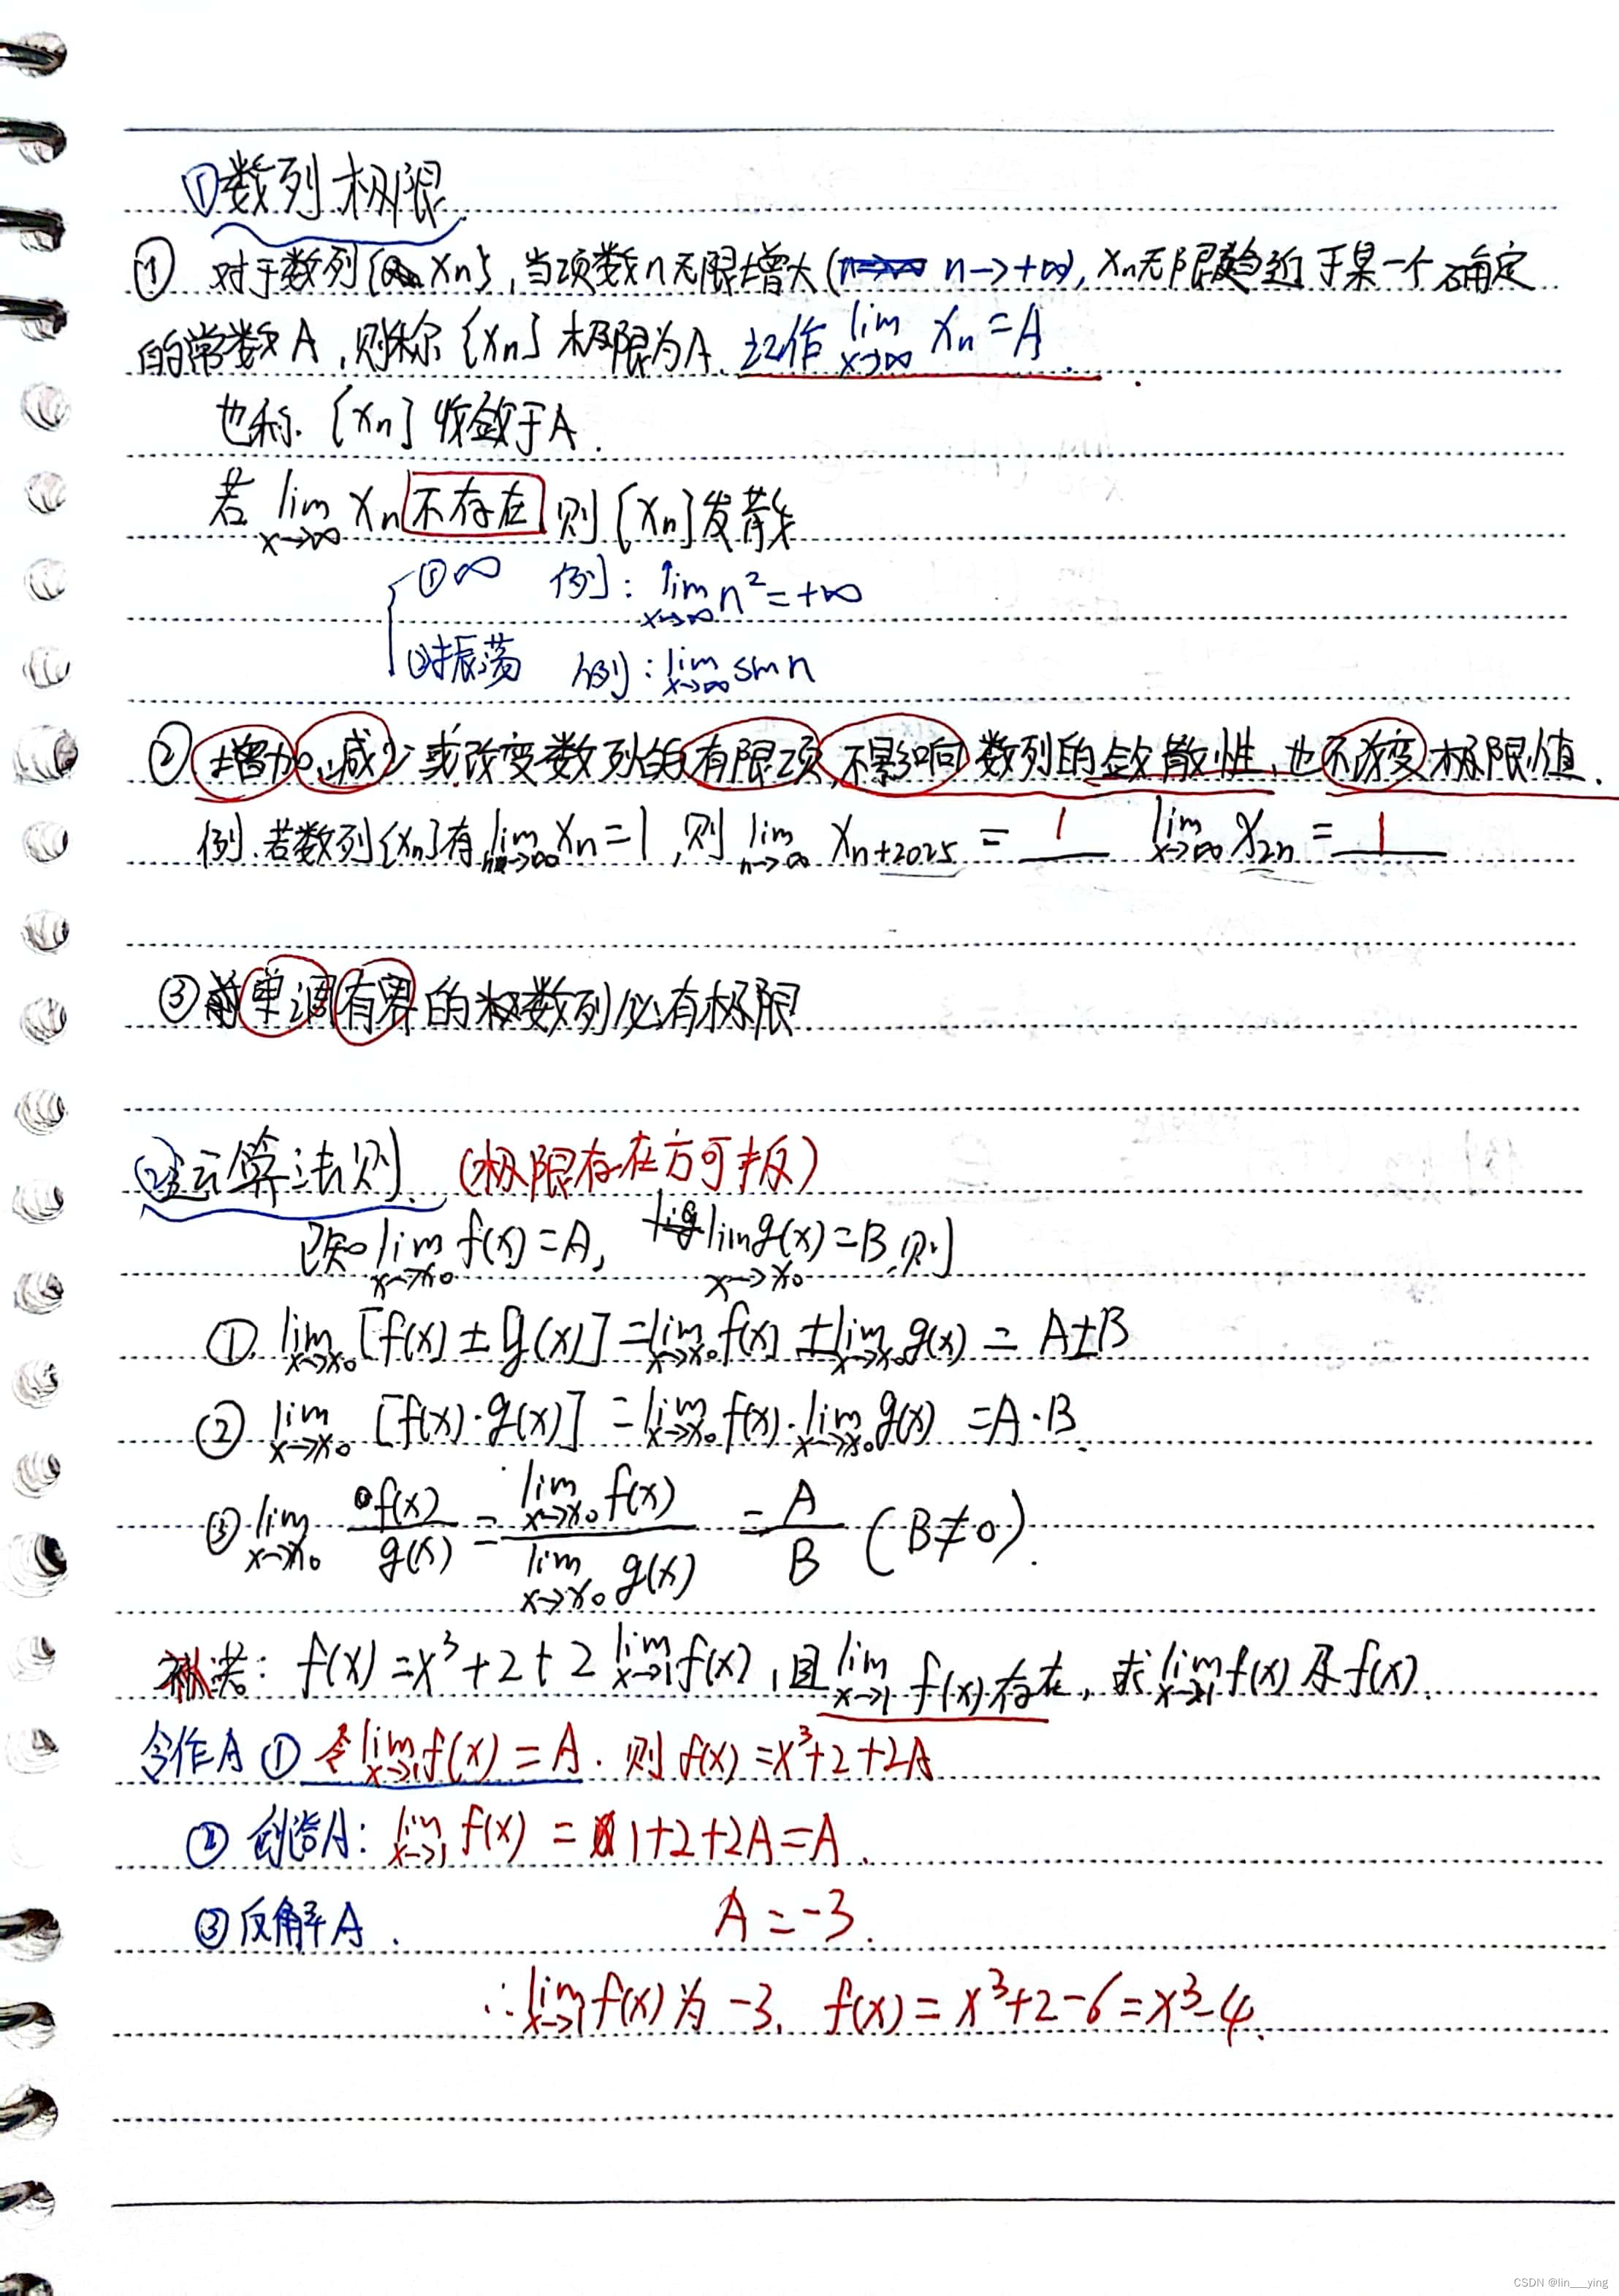 ①数列极限
① 对于数列{xn},当项数n无限增大(n→+∞),xn无限趋近于某一个确定
的常数A,则称{xn}极限为A.记作 lim x→∞ xn=A.
也称{xn}收敛于A.
若 lim x→∞ xn 不存在 则{xn}发散
①∞ 例: lim x→∞ n²=+∞
②振荡 例: lim x→∞ sin n
② 增加、减少或改变数列的有限项,不影响数列的敛散性,也不改变极限值.
例.若数列{xn}有 lim n→∞ xn=1,则 lim n→∞ xn+2025 = 1 lim x→∞ x2n = 1
③单调有界的数列必有极限
②运算法则.(极限存在方可拆)
已知 lim x→x0 f(x)=A, lim x→x0 g(x)=B.则
① lim x→x0 [f(x)±g(x)] = lim x→x0 f(x) ± lim x→x0 g(x) = A±B
② lim x→x0 [f(x)·g(x)] = lim x→x0 f(x)· lim x→x0 g(x) =A·B.
③ lim x→x0 f(x)/g(x) = lim x→x0 f(x) / lim x→x0 g(x) = A/B (B≠0).
: f(x)=x³+2+2 lim x→1 f(x),且 lim x→1 f(x)存在,求 lim x→1 f(x)及f(x).
令作A ① 令 lim x→1 f(x)=A. 则f(x)=x³+2+2A
② 创造A: lim x→1 f(x) = 1+2+2A=A.
③反解A. A=-3.
∴ lim x→1 f(x)为-3. f(x)=x³+2-6=x³-4.
CSDN @lin___ying